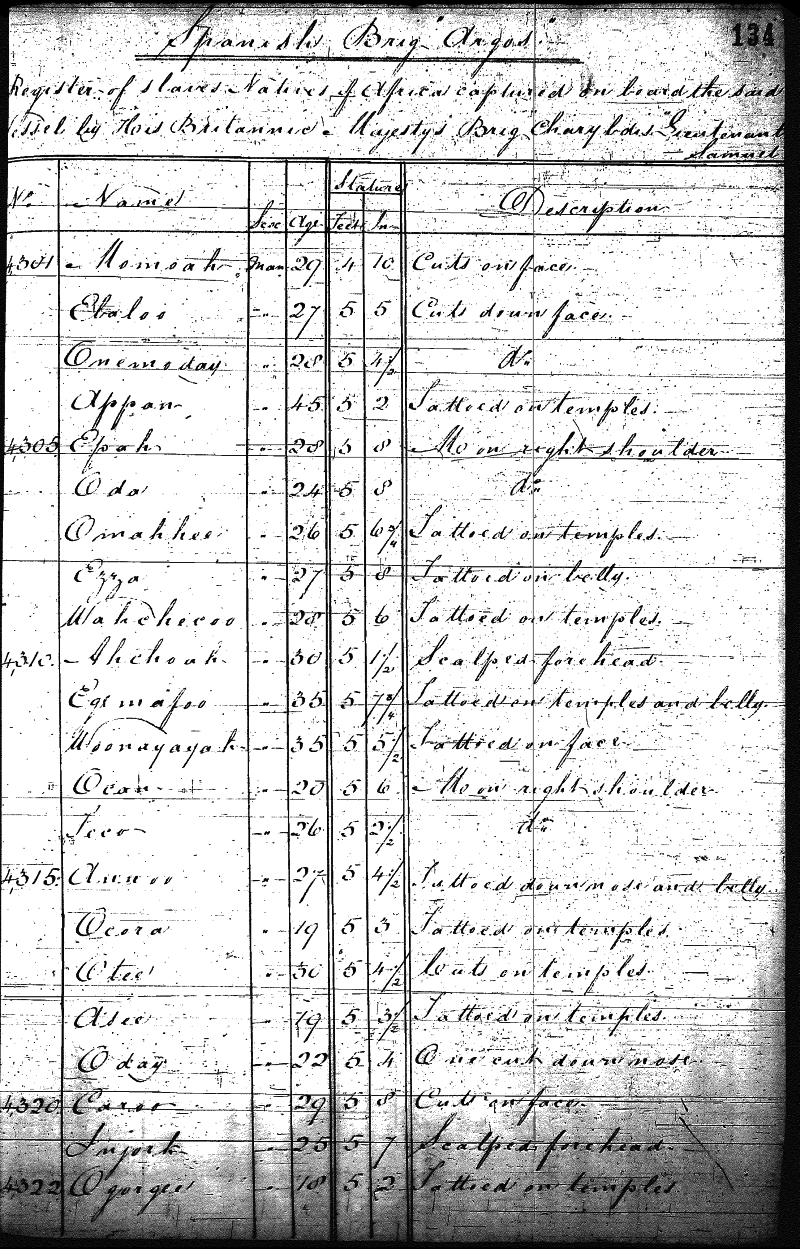 134
Spanish Brig "Argos"
Register of slaves Natives of Africa captured on board the said
Vessel by His Britannic Majesty's Brig Charybdis Lieutenant
Samuel
No. Name Sex Age Stature Description
Feet In
4301 Momoah Man 29 4 10 Cuts on face
Ebaloo " 27 5 5 Cuts down face
Onemoday " 28 5 4½ do
Appan " 45 5 2 Tattoed on temples
4305 Epah " 28 5 8 Mo on right shoulder
Oda " 24 5 8 do
Omahhee " 26 5 6¾ Tattoed on temples
Ezza " 27 5 8 Tattoed on belly
Wahchecoo " 28 5 6 Tattoed on temples
4310 Ahchoah " 30 5 1½ Scalped forehead
Egemafoo " 35 5 7¾ Tattoed on temples and belly
Woonayayah " 35 5 5½ Tattoed on face
Ocan " 20 5 6 Mo on right shoulder
Teco " 26 5 2½ do
4315 Aunoo " 27 5 4½ Tattoed down nose and belly
Ocora " 19 5 3 Tattoed on temples
Otee " 30 5 4½ Cuts on temples
Asee " 19 5 3½ Tattoed on temples
Oday " 22 5 4 One cut down nose
4320 Caroo " 29 5 8 Cuts on face
Injork " 25 5 7 Scalped forehead
4322 Ogorgee " 18 5 2 Tattoed on temples